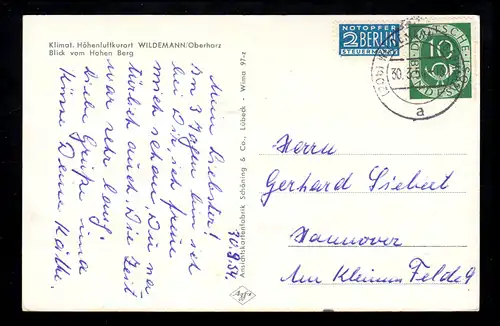 Klimat. Höhenluftkurort WILDEMANN/Oberharz
Blick vom Hohen Berg
Mein Liebster!
In 3 Tagen bin ich
bei Dir, ich freue
mich schon, Du na
türlich auch. Die Zeit
war sehr lang.
Viele Grüße und
Küsse Deine Käthe.
30.8.54
Ansichtskartenfabrik Schöning & Co., Lübeck - Wilma 97-z
NOTOPFER
2 BERLIN
STEUERMARKE
DEUTSCHE
10
30.8
a
Herrn
Gerhard Siebert
Hannover
Am Kleinen Felde 9